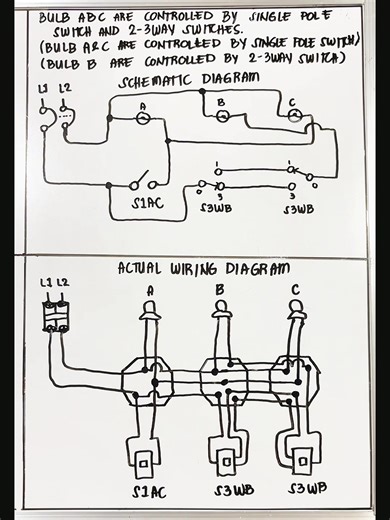 BULB ABC ARE CONTROLLED BY SINGLE POLE
SWITCH AND 2-3WAY SWITCHES.
(BULB A&C ARE CONTROLLED BY SINGLE POLE SWITCH)
(BULB B ARE CONTROLLED BY 2-3WAY SWITCH)
SCHEMATIC DIAGRAM
L1 L2
A B C
1 1
0 0
3 3
S1AC S3WB S3WB
ACTUAL WIRING DIAGRAM
L1 L2 A B C
S1AC S3WB S3WB